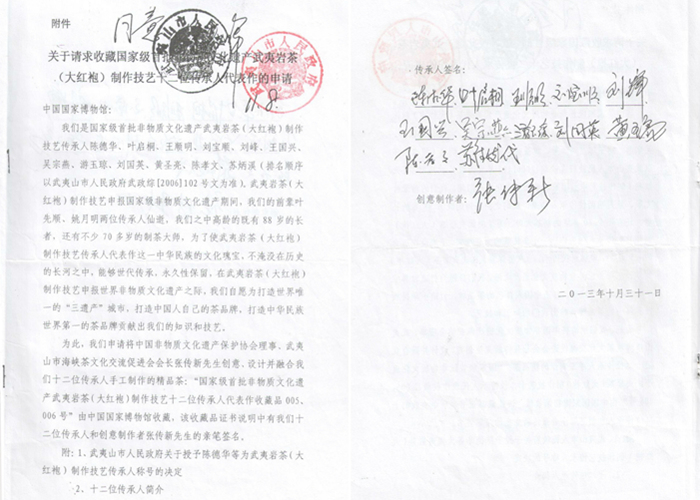 附件
同意
关于请求收藏国家级首批非物质文化遗产武夷岩茶
（大红袍）制作技艺十二位传承人代表作的申请
中国国家博物馆：
我们是国家级首批非物质文化遗产武夷岩茶（大红袍）制作
技艺传承人陈德华、叶启桐、王顺明、刘宝顺、刘峰、王国兴、
吴宗燕、游玉琼、刘国英、黄圣亮、陈孝文、苏炳溪（排名顺序
以武夷山市人民政府武政综[2006]102号文为准）。武夷岩茶（大
红袍）制作技艺申报国家级非物质文化遗产期间，我们的前辈叶
先顺、姚月明两位传承人仙逝，我们之中高龄的既有88岁的长
者，还有不少70多岁的制茶大师，为了使武夷岩茶（大红袍）
制作技艺传承人代表作这一中华民族的文化瑰宝，不淹没在历史
的长河之中，能够世代传承，永久性保留，在武夷岩茶（大红袍）
制作技艺申报世界非物质文化遗产之际，我们自愿为打造世界唯
一的“三遗产”城市，打造中国人自己的茶品牌，打造中华民族
世界第一的茶品牌贡献出我们的知识和技艺。
为此，我们申请将中国非物质文化遗产保护协会理事、武夷
山市海峡茶文化交流促进会会长张传新先生创意、设计并融合我
们十二位传承人手工制作的精品茶：“国家级首批非物质文化遗
产武夷岩茶（大红袍）制作技艺十二位传承人代表作收藏品005、
006号”由中国国家博物馆收藏，该收藏品证书说明中有我们十
二位传承人和创意制作者张传新先生的亲笔签名。
附：1、武夷山市人民政府关于授予陈德华等为武夷岩茶（大
红袍）制作技艺传承人称号的决定
2、十二位传承人简介
传承人签名：
陈德华、叶启桐、王顺明、刘宝顺、刘峰
王国兴、吴宗燕、游玉琼、刘国英、黄圣亮
创意制作者：张传新
二〇一三年十月三十一日